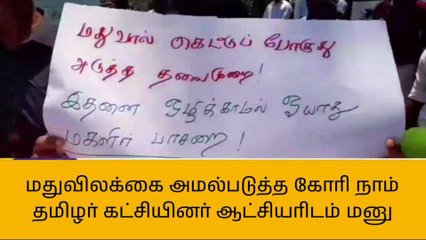 மதுவால் கெட்டுப் போகுது
அடுத்த தலைமுறை!
இதனை ஒழிக்காமல் ஓயாது
மகளிர் பாசறை!
மதுவிலக்கை அமல்படுத்த கோரி நாம்
தமிழர் கட்சியினர் ஆட்சியரிடம் மனு